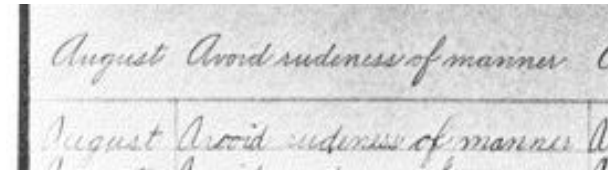 August Avoid rudeness of manner
August Avoid rudeness of manner